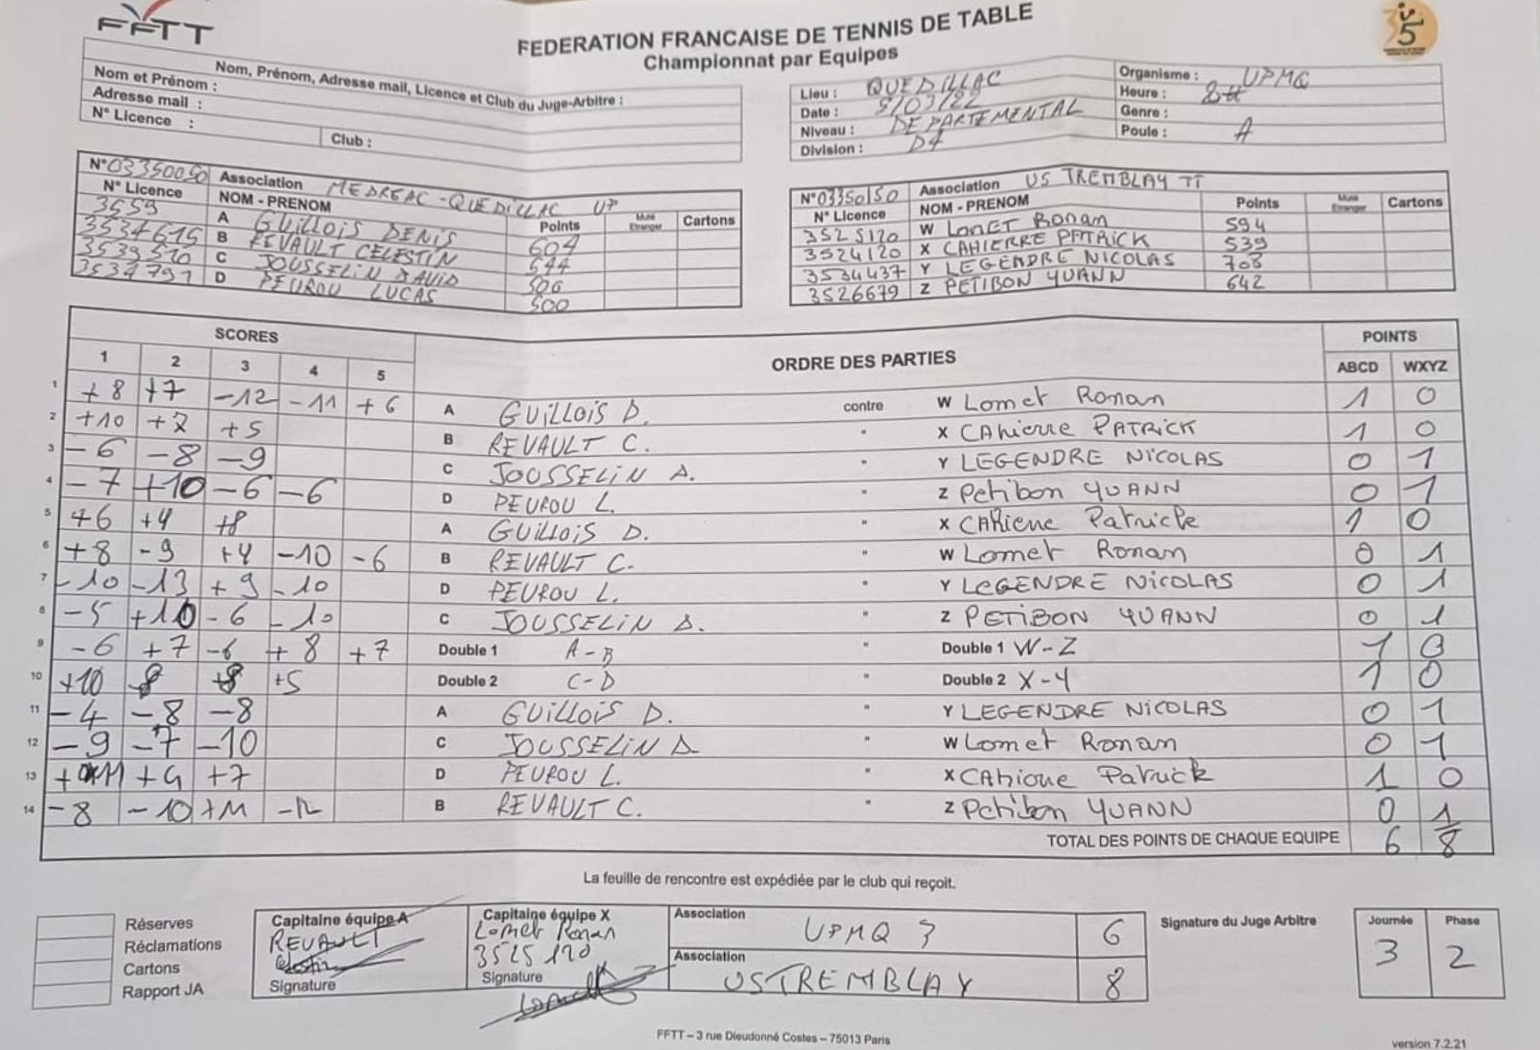 FFTT
FEDERATION FRANCAISE DE TENNIS DE TABLE
Championnat par Equipes
Nom, Prénom, Adresse mail, Licence et Club du Juge-Arbitre :
Nom et Prénom :
Adresse mail :
N° Licence :
Club :
Lieu : QUEDILLAC
Date : 5/03/22
Niveau : DEPARTEMENTAL
Division : D4
Organisme : UPMQ
Heure :
Genre :
Poule : A
N° 03350050 Association MEDREAC-QUEDILLAC UP
N° Licence NOM - PRENOM Points Muté Etranger Cartons
3559 A GUILLOIS DENIS 604
3534615 B REVAULT CELESTIN 544
3539510 C JOUSSELIN DAVID 506
3534791 D PEUROU LUCAS 500
N° 03350150 Association US TREMBLAY TT
N° Licence NOM - PRENOM Points Muté Etranger Cartons
3525120 W LOMET Ronan 594
3524120 X CAHIERRE PATRICK 539
3534437 Y LEGENDRE NICOLAS 708
3526679 Z PETIBON YUANN 642
SCORES ORDRE DES PARTIES POINTS
1 2 3 4 5 ABCD WXYZ
1 +8 +7 -12 -11 +6 A GUILLOIS D. contre W Lomet Ronan 1 0
2 +10 +2 +5 B REVAULT C. " X CAhierre PATRICK 1 0
3 -6 -8 -9 C JOUSSELIN D. " Y LEGENDRE NICOLAS 0 1
4 -7 +10 -6 -6 D PEUROU L. " Z Petibon YUANN 0 1
5 +6 +4 +8 A GUILLOIS D. " X Patrick 1 0
6 +8 -9 +4 -10 -6 B REVAULT C. " W Lomet Ronan 0 1
7 -10 -13 +9 -10 D PEUROU L. " Y LEGENDRE NICOLAS 0 1
8 -5 +10 -6 -10 C JOUSSELIN D. " Z PETIBON YUANN 0 1
9 -6 +7 -6 +8 +7 Double 1 A-B " Double 1 W-Z 1 0
10 +10 +5 Double 2 C-D " Double 2 X-Y 1 0
11 -4 -8 -8 A GUILLOIS D. " Y LEGENDRE NICOLAS 0 1
12 -9 -7 -10 C JOUSSELIN D. " W Lomet Ronan 0 1
13 +9 +7 D PEUROU L. " X Patrick 1 0
14 -8 -10 +11 -12 B REVAULT C. " Z Petibon YUANN 0 1
TOTAL DES POINTS DE CHAQUE EQUIPE 6 8
La feuille de rencontre est expédiée par le club qui reçoit.
Réserves
Réclamations
Cartons
Rapport JA
Capitaine équipe A
REVAULT
Celestin
Signature
Capitaine équipe X
Lomet Ronan
3525120
Signature
Association UPMQ 3 6
Association US TREMBLAY 8
Signature du Juge Arbitre
Journée Phase
3 2
FFTT – 3 rue Dieudonné Costes – 75013 Paris
version 7.2.21